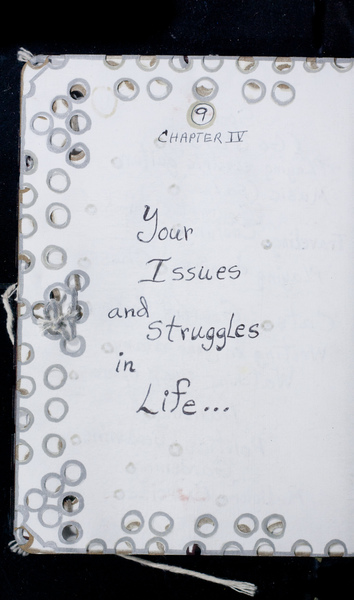 9
CHAPTER IV
Your
Issues
and
Struggles
in
Life...